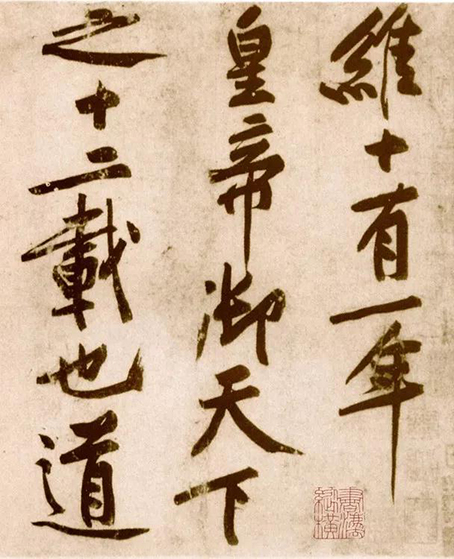 維十有一年
皇帝御天下
之十二載也道